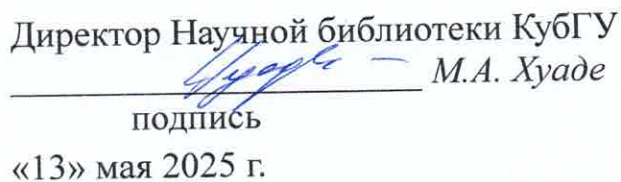 Директор Научной библиотеки КубГУ
М.А. Хуаде
подпись
«13» мая 2025 г.